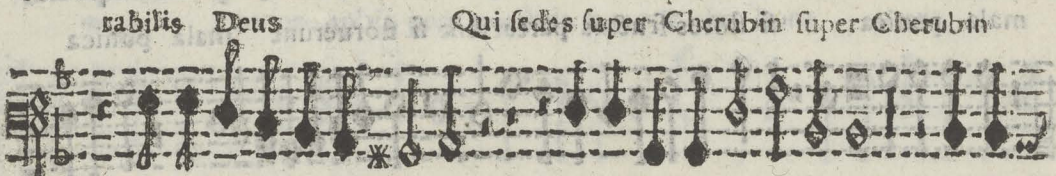 rabilis Deus Qui ſedes ſuper Cherubin ſuper Cherubin